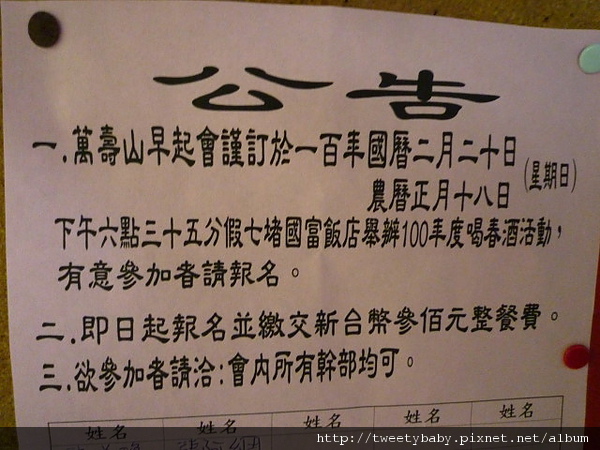 公告
一.萬壽山早起會謹訂於一百年國曆二月二十日
農曆正月十八日
(星期日)
下午六點三十五分假七堵國富飯店舉辦100年度喝春酒活動，
有意參加者請報名。
二.即日起報名並繳交新台幣參佰元整餐費。
三.欲參加者請洽:會內所有幹部均可。
姓名 姓名 姓名 姓名 姓名
http://tweetybaby.pixnet.net/album